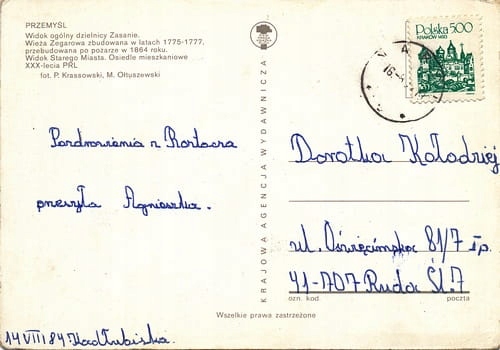 PRZEMYŚL
Widok ogólny dzielnicy Zasanie.
Wieża Zegarowa zbudowana w latach 1775-1777,
przebudowana po pożarze w 1864 roku.
Widok Starego Miasta. Osiedle mieszkaniowe
XXX-lecia PRL
fot. P. Krassowski, M. Ołtuszewski
Polska 500
KRAKÓW 1493
KRAJOWA AGENCJA WYDAWNICZA
Pozdrowienia z
przesyła Agnieszka.
14 VIII 84
Dorotka Kołodziej
ul. Oświęcimska 81/7 I p.
41-707 Ruda Śl. 7
ozn. kod poczta
Wszelkie prawa zastrzeżone